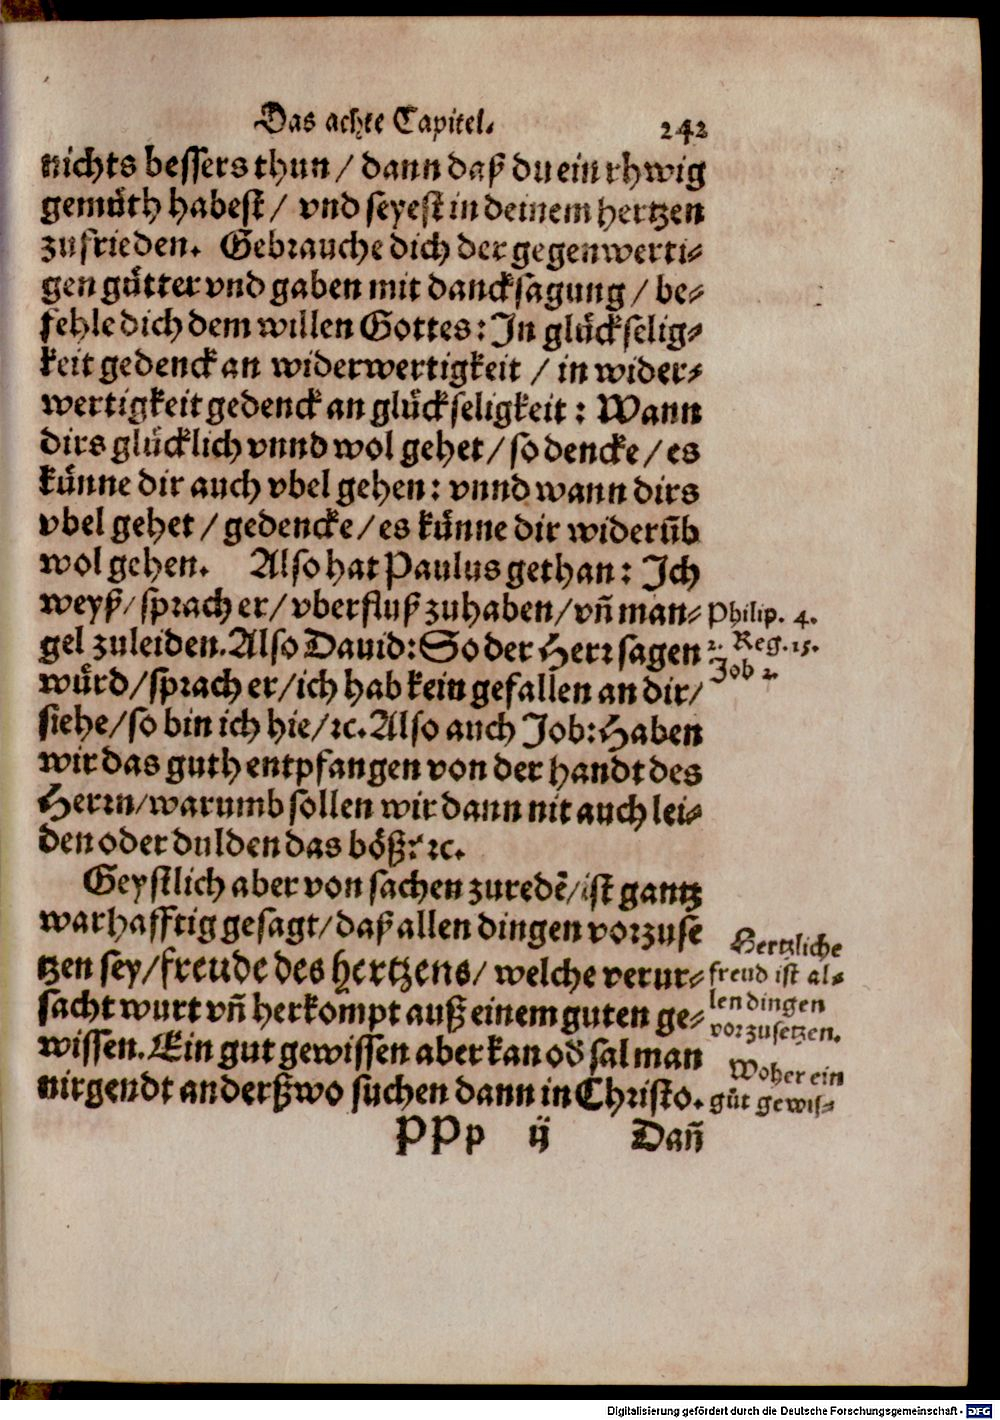 Das achte Capitel. 242
nichts bessers thun / dann daß du ein rhwig
gemuͤth habest / vnd seyest in deinem hertzen
zufrieden. Gebrauche dich der gegenwerti-
gen guͤtter vnd gaben mit dancksagung / be-
fehle dich dem willen Gottes: In gluͤckselig-
keit gedenck an widerwertigkeit / in wider-
wertigkeit gedenck an gluͤckseligkeit: Wann
dirs gluͤcklich vnnd wol gehet / so dencke / es
kuͤnne dir auch vbel gehen: vnnd wann dirs
vbel gehet / gedencke / es kuͤnne dir widerūb
wol gehen. Also hat Paulus gethan: Ich
weyß / sprach er / vberfluß zuhaben / vn̄ man-
gel zuleiden. Also Dauid: So der Herr sagen
wuͤrd / sprach er / ich hab kein gefallen an dir /
siehe / so bin ich hie / ꝛc. Also auch Job: Haben
wir das guth entpfangen von der handt des
Herrn / warumb sollen wir dann nit auch lei-
den oder dulden das boͤß? ꝛc.
Geystlich aber von sachen zuredē / ist gantz
warhafftig gesagt / daß allen dingen vorzuse
tzen sey / freude des hertzens / welche verur-
sacht wurt vn̄ herkompt auß einem guten ge-
wissen. Ein gut gewissen aber kan od̄ sal man
nirgendt anderßwo suchen dann in Christo.
PPp ij Dan̄
Philip. 4.
2. Reg. 15.
Job 2.
Hertzliche
freud ist al-
len dingen
vorzusetzen.
Woher ein
guͤt gewis-
Digitalisierung gefördert durch die Deutsche Forschungsgemeinschaft - DFG